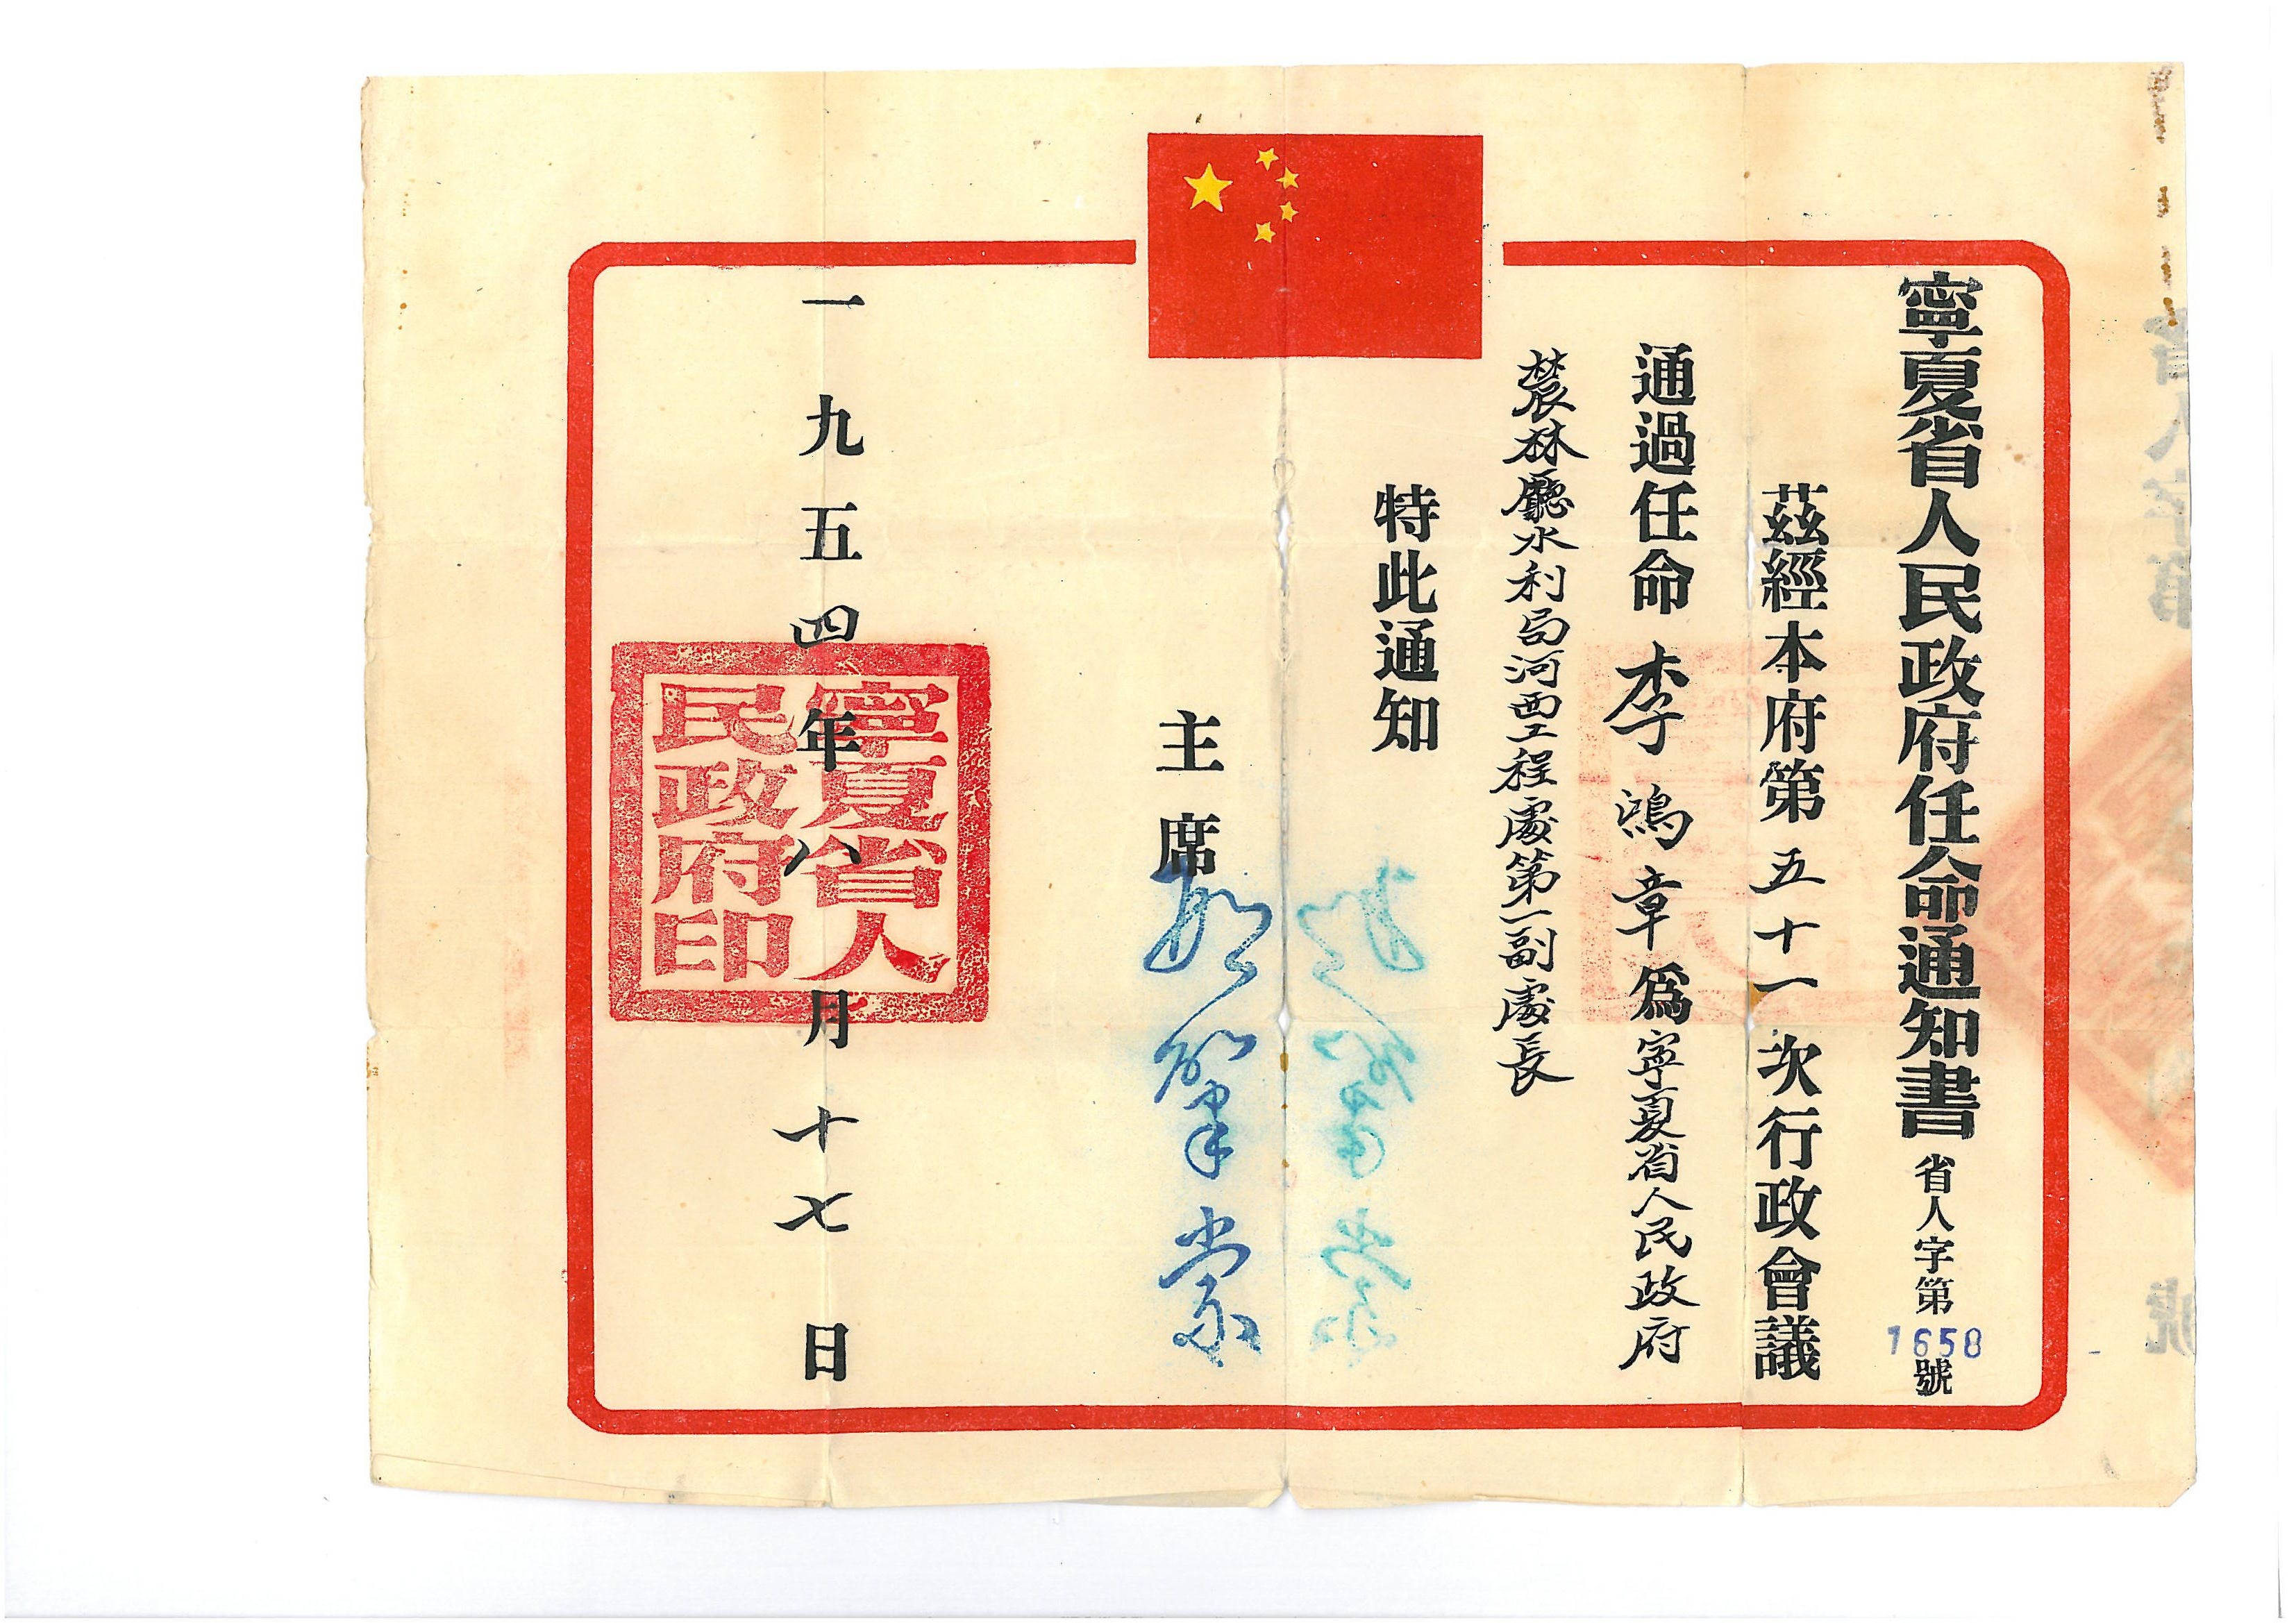 寧夏省人民政府任命通知書 省人字第1658號
茲經本府第五十一次行政會議
通過任命李鴻章爲寧夏省人民政府
農林廳水利局河西工程處第一副處長
特此通知
主席 邢肇棠
一九五四年八月十七日
寧夏省人
民政府印
省人字第 號